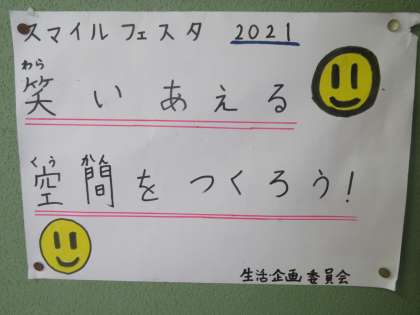 スマイルフェスタ 2021
わら
笑いあえる
くう かん
空間をつくろう!
生活・企画委員会